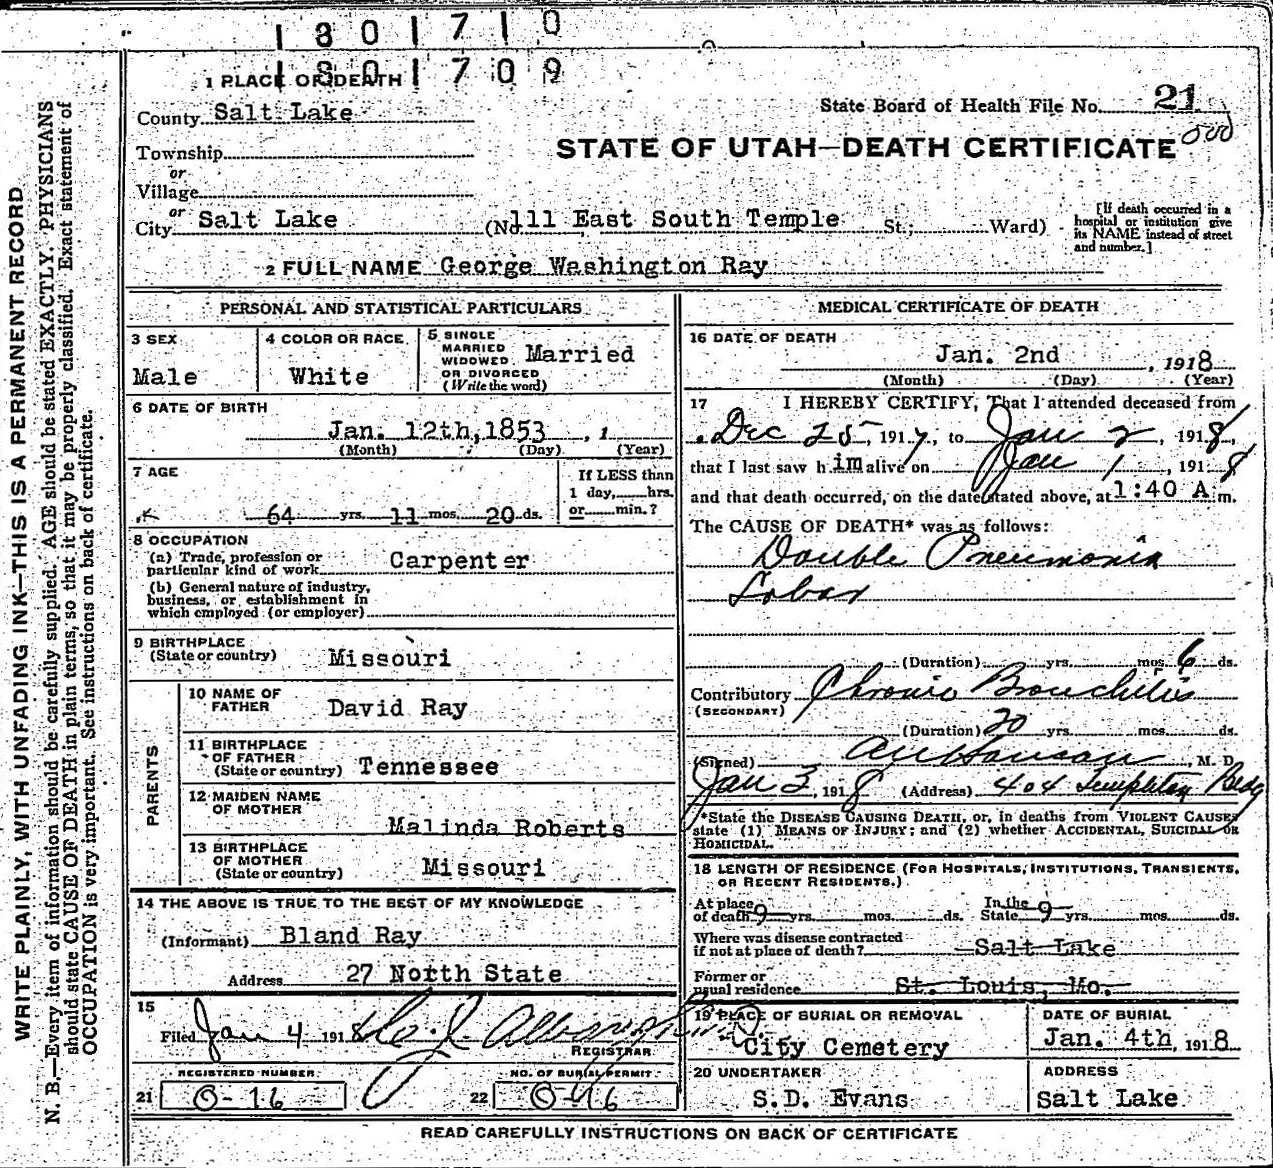 1801710
1801709
1 PLACE OF DEATH
County Salt Lake
State Board of Health File No. 21
Township
or
Village
or
City Salt Lake
STATE OF UTAH—DEATH CERTIFICATE
(No 111 East South Temple St.; Ward)
[If death occurred in a
hospital or institution give
its NAME instead of street
and number.]
2 FULL NAME George Washington Ray
PERSONAL AND STATISTICAL PARTICULARS
3 SEX
Male
4 COLOR OR RACE
White
5 SINGLE
MARRIED
WIDOWED
OR DIVORCED
(Write the word)
Married
6 DATE OF BIRTH
Jan. 12th, 1853 , 1
(Month) (Day) (Year)
7 AGE
64 yrs. 11 mos. 20 ds.
If LESS than
1 day, hrs.
or min.?
8 OCCUPATION
(a) Trade, profession or
particular kind of work Carpenter
(b) General nature of industry,
business, or establishment in
which employed (or employer)
9 BIRTHPLACE
(State or country) Missouri
PARENTS
10 NAME OF
FATHER David Ray
11 BIRTHPLACE
OF FATHER
(State or country) Tennessee
12 MAIDEN NAME
OF MOTHER
Malinda Roberts
13 BIRTHPLACE
OF MOTHER
(State or country) Missouri
14 THE ABOVE IS TRUE TO THE BEST OF MY KNOWLEDGE
(Informant) Bland Ray
Address 27 North State
15
Filed Jan 4 1918
REGISTRAR
REGISTERED NUMBER
21 O-16
NO. OF BURIAL PERMIT
22 O-16
MEDICAL CERTIFICATE OF DEATH
16 DATE OF DEATH
Jan. 2nd , 1918
(Month) (Day) (Year)
17 I HEREBY CERTIFY, That I attended deceased from
Dec 25, 1917, to Jan 2, 1918,
that I last saw him alive on Jan 1, 1918
and that death occurred, on the date stated above, at 1:40 A m.
The CAUSE OF DEATH* was as follows:
Double Pneumonia
Lobar
(Duration) yrs. mos. 6 ds.
Contributory Chronic Bronchitis
(SECONDARY)
(Duration) 20 yrs. mos. ds.
(Signed) , M. D.
Jan 3, 1918 (Address) 404 Templeton Bldg
*State the DISEASE CAUSING DEATH, or, in deaths from VIOLENT CAUSES
state (1) MEANS OF INJURY; and (2) whether ACCIDENTAL, SUICIDAL OR
HOMICIDAL.
18 LENGTH OF RESIDENCE (FOR HOSPITALS, INSTITUTIONS, TRANSIENTS,
OR RECENT RESIDENTS.)
At place
of death 9 yrs. mos. ds.
In the
State 9 yrs. mos. ds.
Where was disease contracted
if not at place of death? Salt Lake
Former or
usual residence St. Louis, Mo.
19 PLACE OF BURIAL OR REMOVAL
City Cemetery
DATE OF BURIAL
Jan. 4th, 1918
20 UNDERTAKER
S.D. Evans
ADDRESS
Salt Lake
READ CAREFULLY INSTRUCTIONS ON BACK OF CERTIFICATE
WRITE PLAINLY, WITH UNFADING INK—THIS IS A PERMANENT RECORD
N. B.—Every item of information should be carefully supplied. AGE should be stated EXACTLY. PHYSICIANS
should state CAUSE OF DEATH in plain terms, so that it may be properly classified. Exact statement of
OCCUPATION is very important. See instructions on back of certificate.